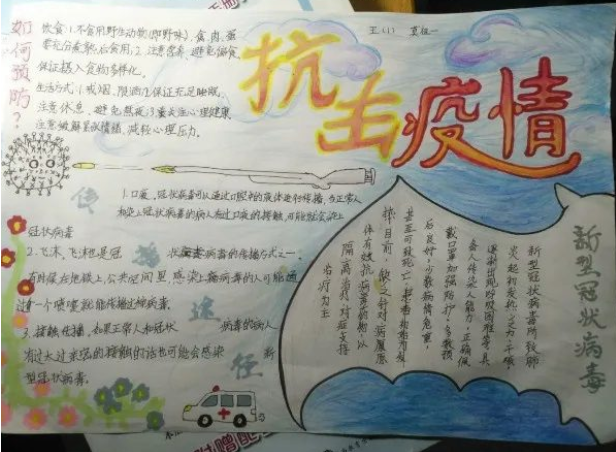 如何预防?
饮食:1.不食用野生动物(即野味),禽、肉、蛋
要充分煮熟后食用;2.注意营养,避免偏食,
保证摄入食物多样化。
生活方式:1.戒烟、限酒;2.保证充足睡眠,
注意休息,避免熬夜;3.重关注心理健康,
注意缓解紧张情绪,减轻心理压力。
五(1)
抗击疫情
传播途径
1.口液,冠状病毒可以通过口腔里的液体进行传播,在正常人
和染上冠状病毒的病人有过口液的接触,可能就会染上
冠状病毒
2.飞沫,飞沫也是冠状病毒的传播方式之一。
有时候在地铁上,公共空间里,感染上病毒的人可能通
过一个喷嚏就能传播这种病毒。
3.接触传播,如果正常人和冠状病毒的病人
有过太过亲密的接触的话也可能会感染新
型冠状病毒。
新型冠状病毒
新型冠状病毒所致肺
炎起初发热、乏力、干咳,
逐渐出现呼吸困难等,具
备人传染人能力,正确佩
戴口罩加强防护,多数预
后良好,少数病情危重,
甚至可致死亡
目前缺乏针对病原
体有效抗病毒药物,以
隔离治疗、对症支持
治疗为主